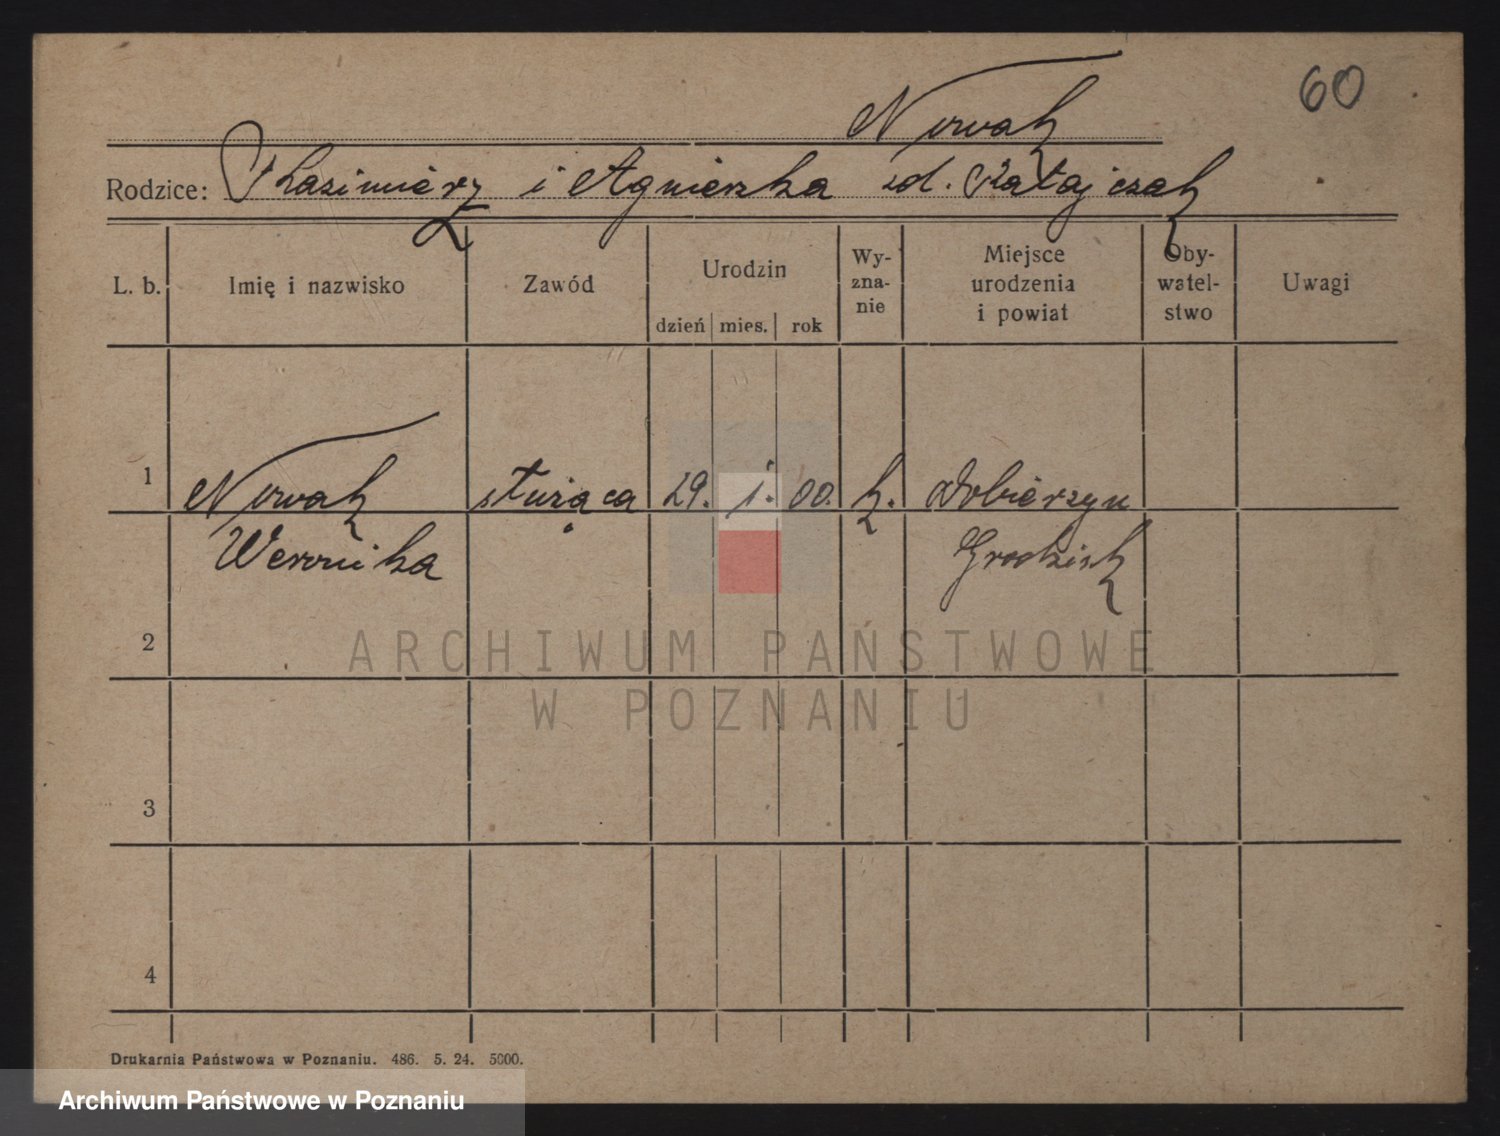 60
Nowak
Rodzice: Kazimierz i Agnieszka zd. Ratajczak
L. b. Imię i nazwisko Zawód Urodzin dzień mies. rok Wy-zna-nie Miejsce urodzenia i powiat Oby-watel-stwo Uwagi
1 Nowak służąca 29. 1. 00. k. Dobierzyn
Weronika Grodzisk
2
ARCHIWUM PAŃSTWOWE
W POZNANIU
3
4
Drukarnia Państwowa w Poznaniu. 486. 5. 24. 5000.
Archiwum Państwowe w Poznaniu